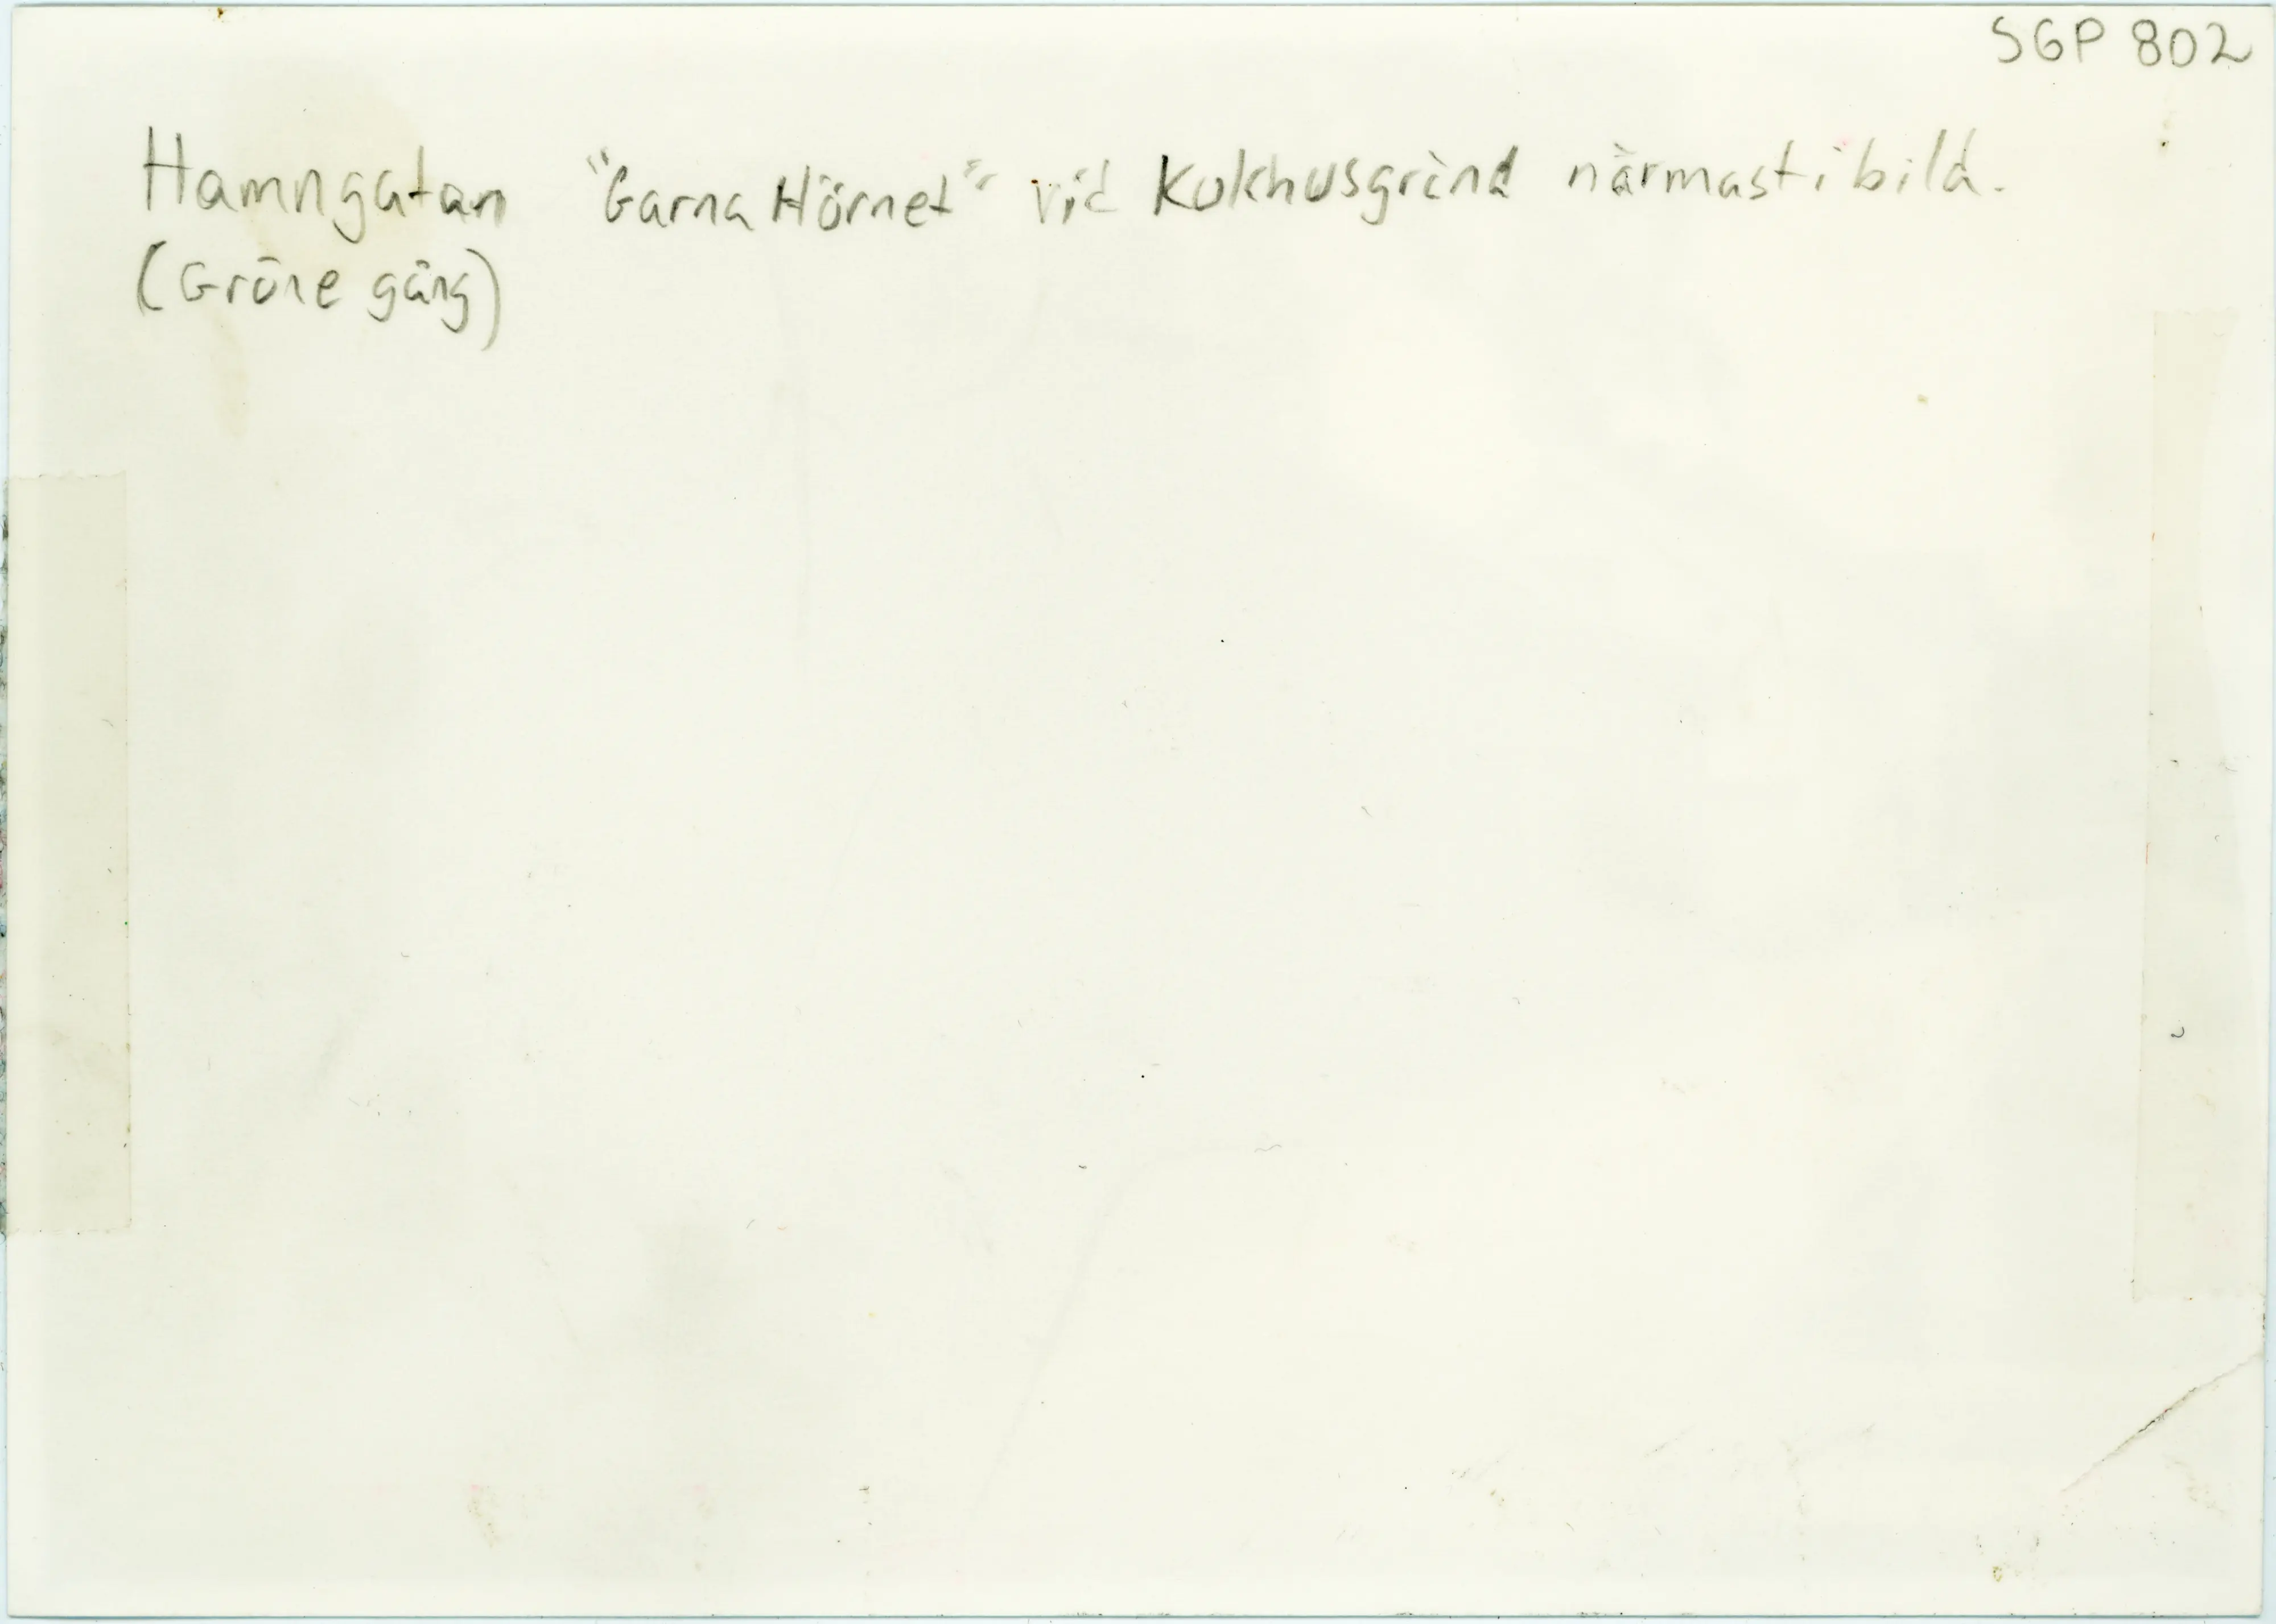 SGP 802
Hamngatan "Garna Hörnet" vid Kokhusgränd närmast i bild.
(Gröne gång)